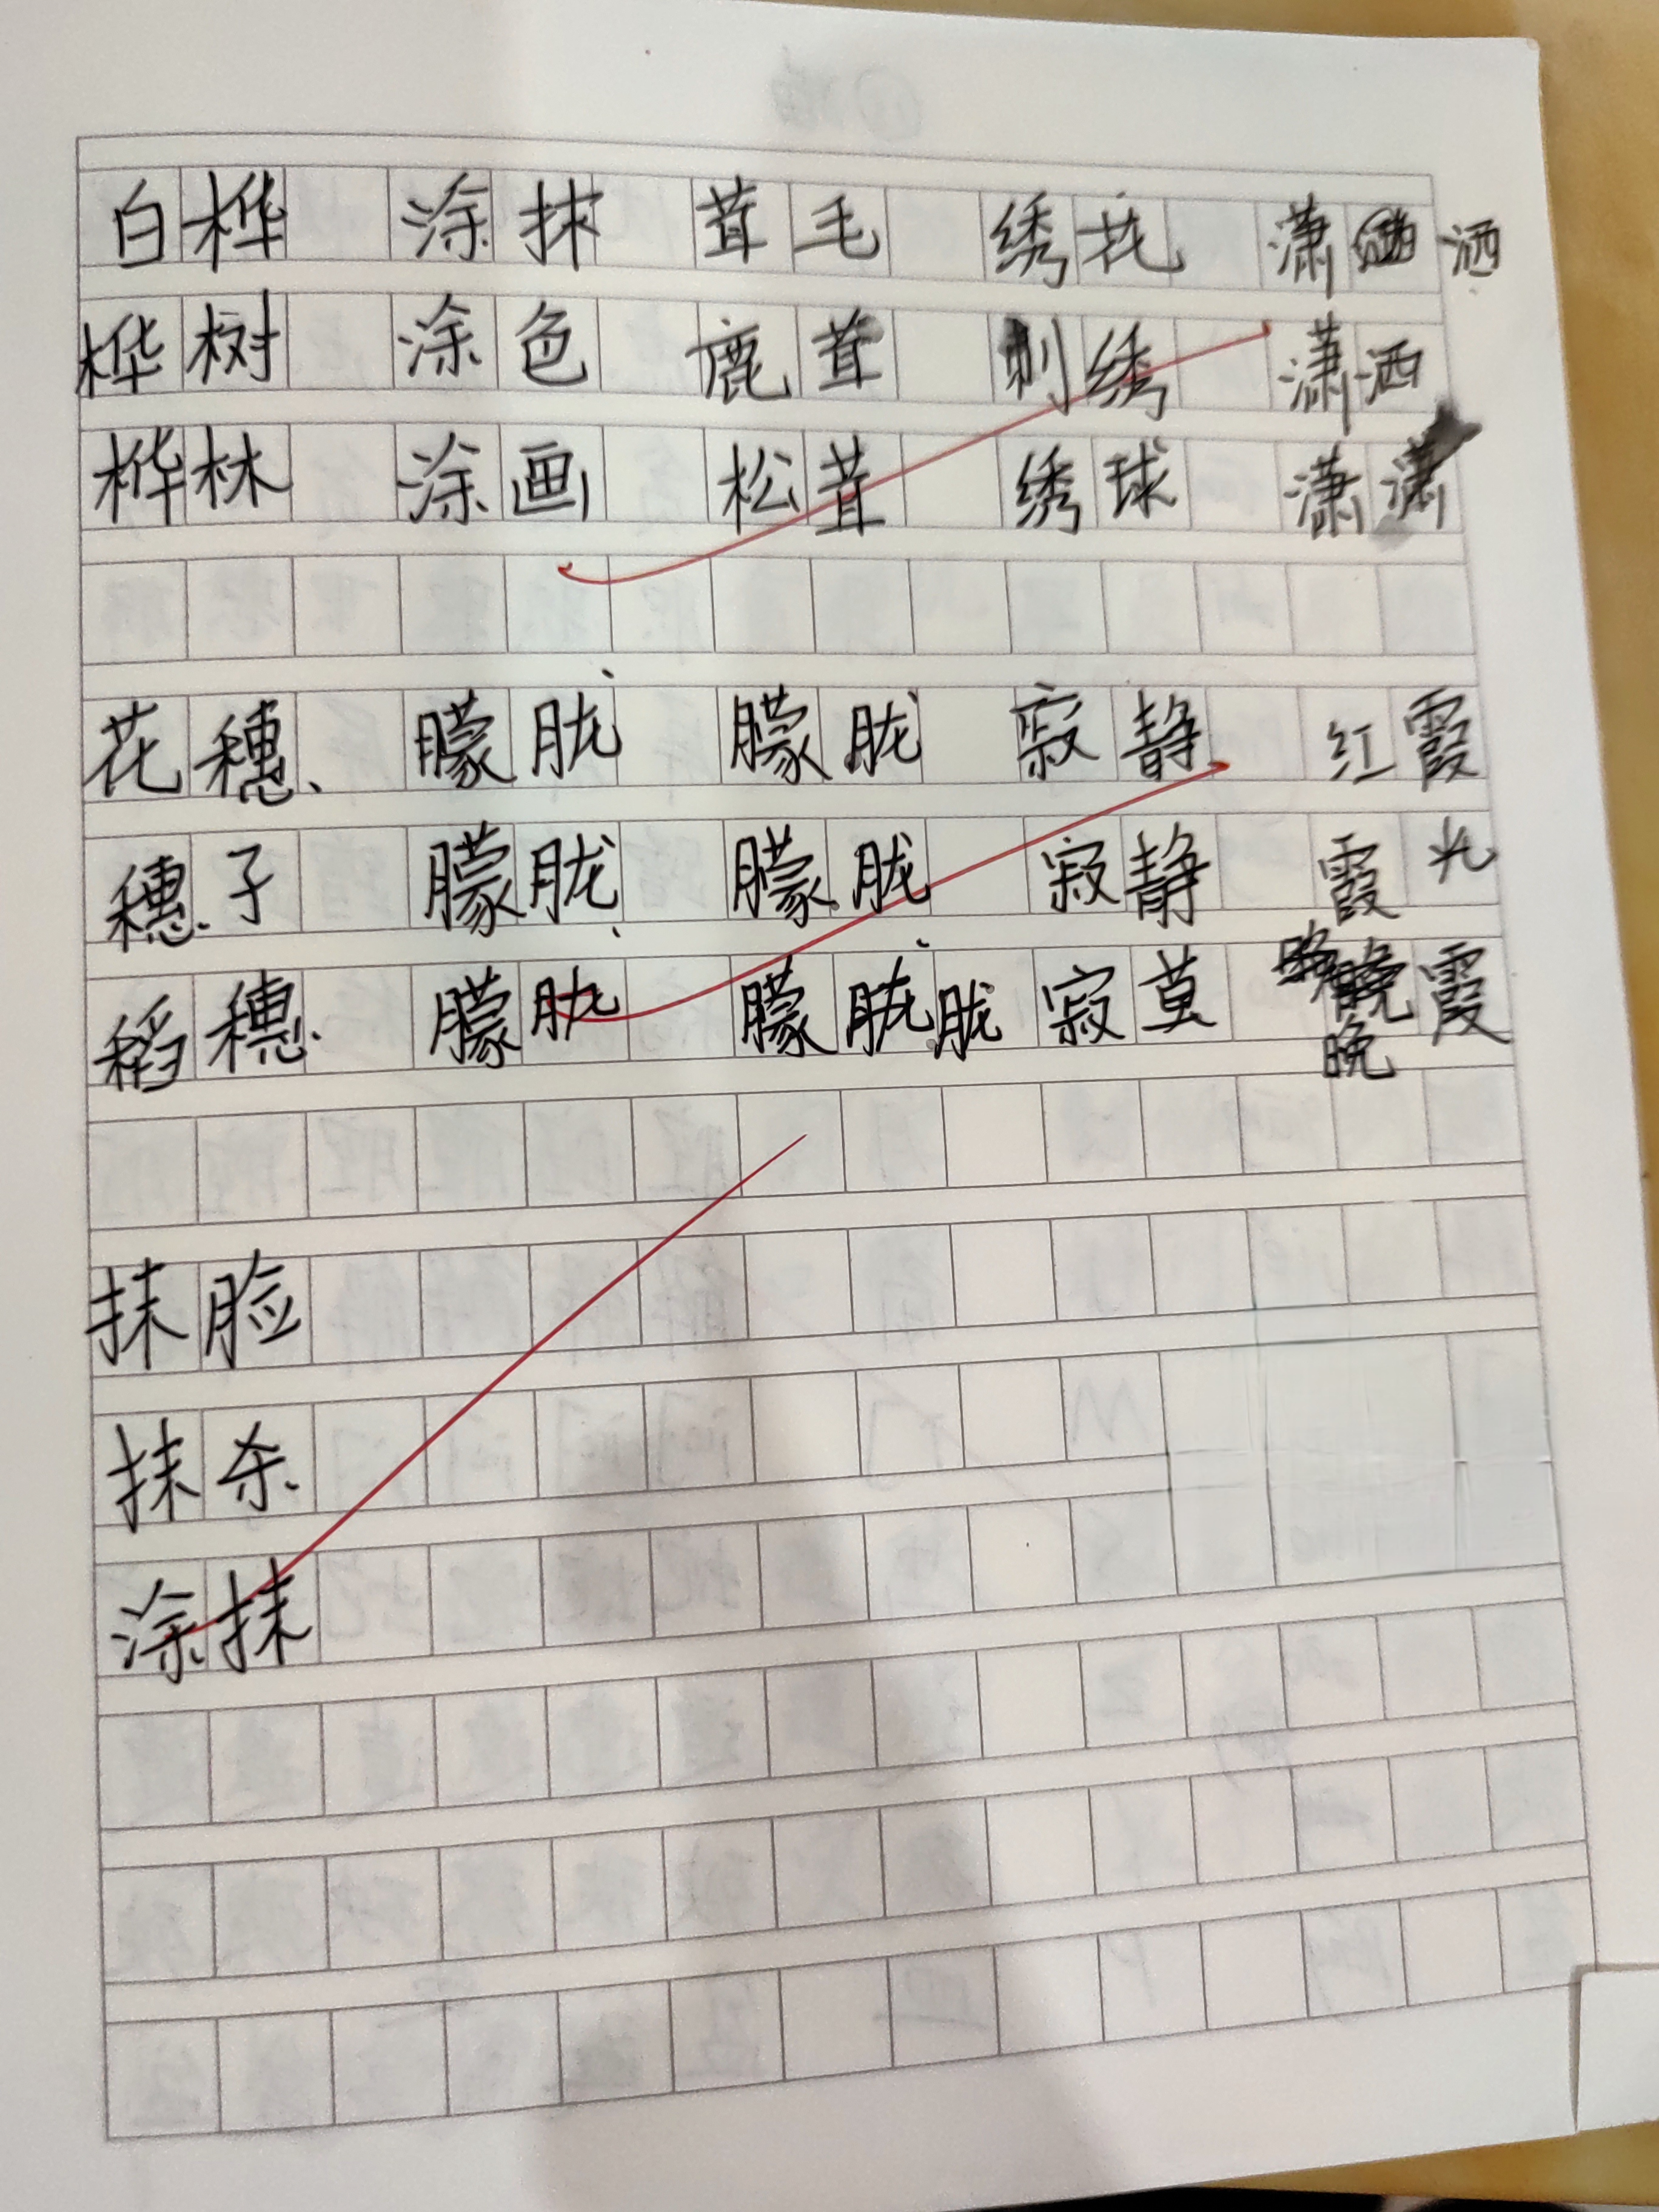 白桦 涂抹 茸毛 绣花 潇洒
桦树 涂色 鹿茸 刺绣 潇洒
桦林 涂画 松茸 绣球 潇潇
花穗 朦胧 朦胧 寂静 红霞
穗子 朦胧 朦胧 寂静 霞光
稻穗 朦胧 朦胧胧 寂莫 晚霞
抹脸
抹杀
涂抹